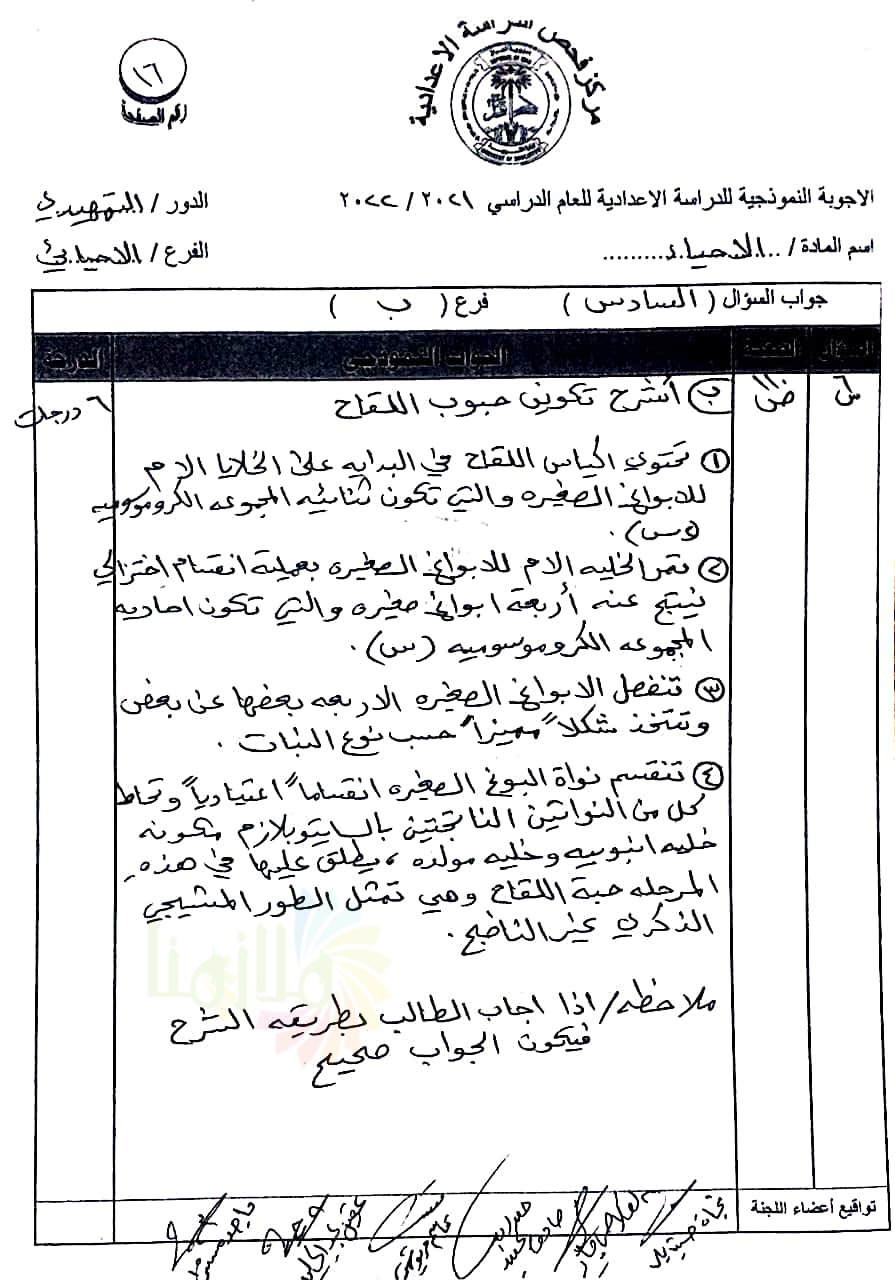 مركز فحص الدراسة الاعدادية
١٦
رقم الصفحة
الاجوبة النموذجية للدراسة الاعدادية للعام الدراسي ٢٠٢١ / ٢٠٢٢
الدور / التمهيدي
اسم المادة / ..الاحياء..........
الفرع / الاحيائي
جواب السؤال ( السادس ) فرع ( ب )
السؤال الصفحة الجواب النموذجي الدرجة
س٦
ب) أشرح تكوين حبوب اللقاح
٦ درجات
١ تحتوي اكياس اللقاح في البدايه على الخلايا الام
للابواغ الصغيره والتي تكون ثنائيه المجموعه الكروموسوميه
(٢س).
٢ تمر الخليه الام للابواغ الصغيره بعملية انقسام اختزالي
ينتج عنه أربعة ابواغ صغيره والتي تكون احاديه
المجموعه الكروموسوميه (س).
٣ تنفصل الابواغ الصغيره الاربعه بعضها عن بعض
وتتخذ شكلاً مميزاً حسب نوع النبات .
٤ تنقسم نواة البوغ الصغيره انقساماً اعتيادياً وتحاط
كل من النواتين الناتجتين بالسايتوبلازم مكونه
خليه انبوبيه وخليه مولده ، يطلق عليها في هذهِ
المرحله حبة اللقاح وهي تمثل الطور المشيجي
الذكري غير الناضج .
ملاحظه / اذا اجاب الطالب بطريقه الشرح
فيكون الجواب صحيح
ملازمنا
تواقيع أعضاء اللجنة